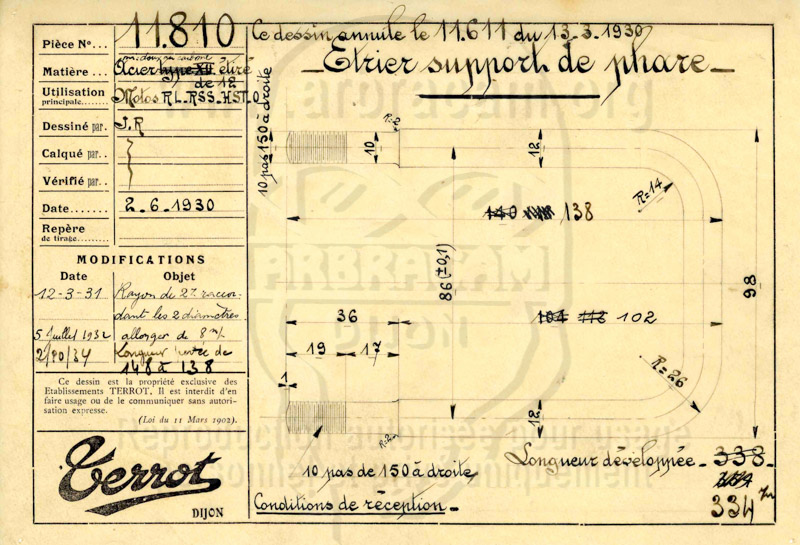 Pièce N°... 11.810
Matière... Acier type XII étiré
de 12
Utilisation
principale........ Motos RL.RSS.HST.O
Dessiné par. J.R
Calqué par..
Vérifié par..
Date....... 2.6.1930
Repère
de tirage.........
MODIFICATIONS
Date Objet
12-3-31 Rayon de 2% raccor-
dant les 2 diamètres
5 Juillet 1932 allonger de 8 m/.
2/10/34 Longueur de
148 à 138
Ce dessin est la propriété exclusive des
Etablissements TERROT. Il est interdit d'en
faire usage ou de le communiquer sans autori-
sation expresse.
(Loi du 11 Mars 1902).
Terrot
DIJON
Ce dessin annule le 11.611 du 13.3.1930
Etrier support de phare
10 pas 150 à droite
R=2
10
12
R=14
140 138
86 (±0,1)
98
36
104 112 102
19 17
1
R=26
12
10 pas de 150 à droite
Longueur développée - 338
334 m/
Conditions de réception -
www.arbracam.org
ARBRACAM
DIJON
Reproduction autorisée pour usage